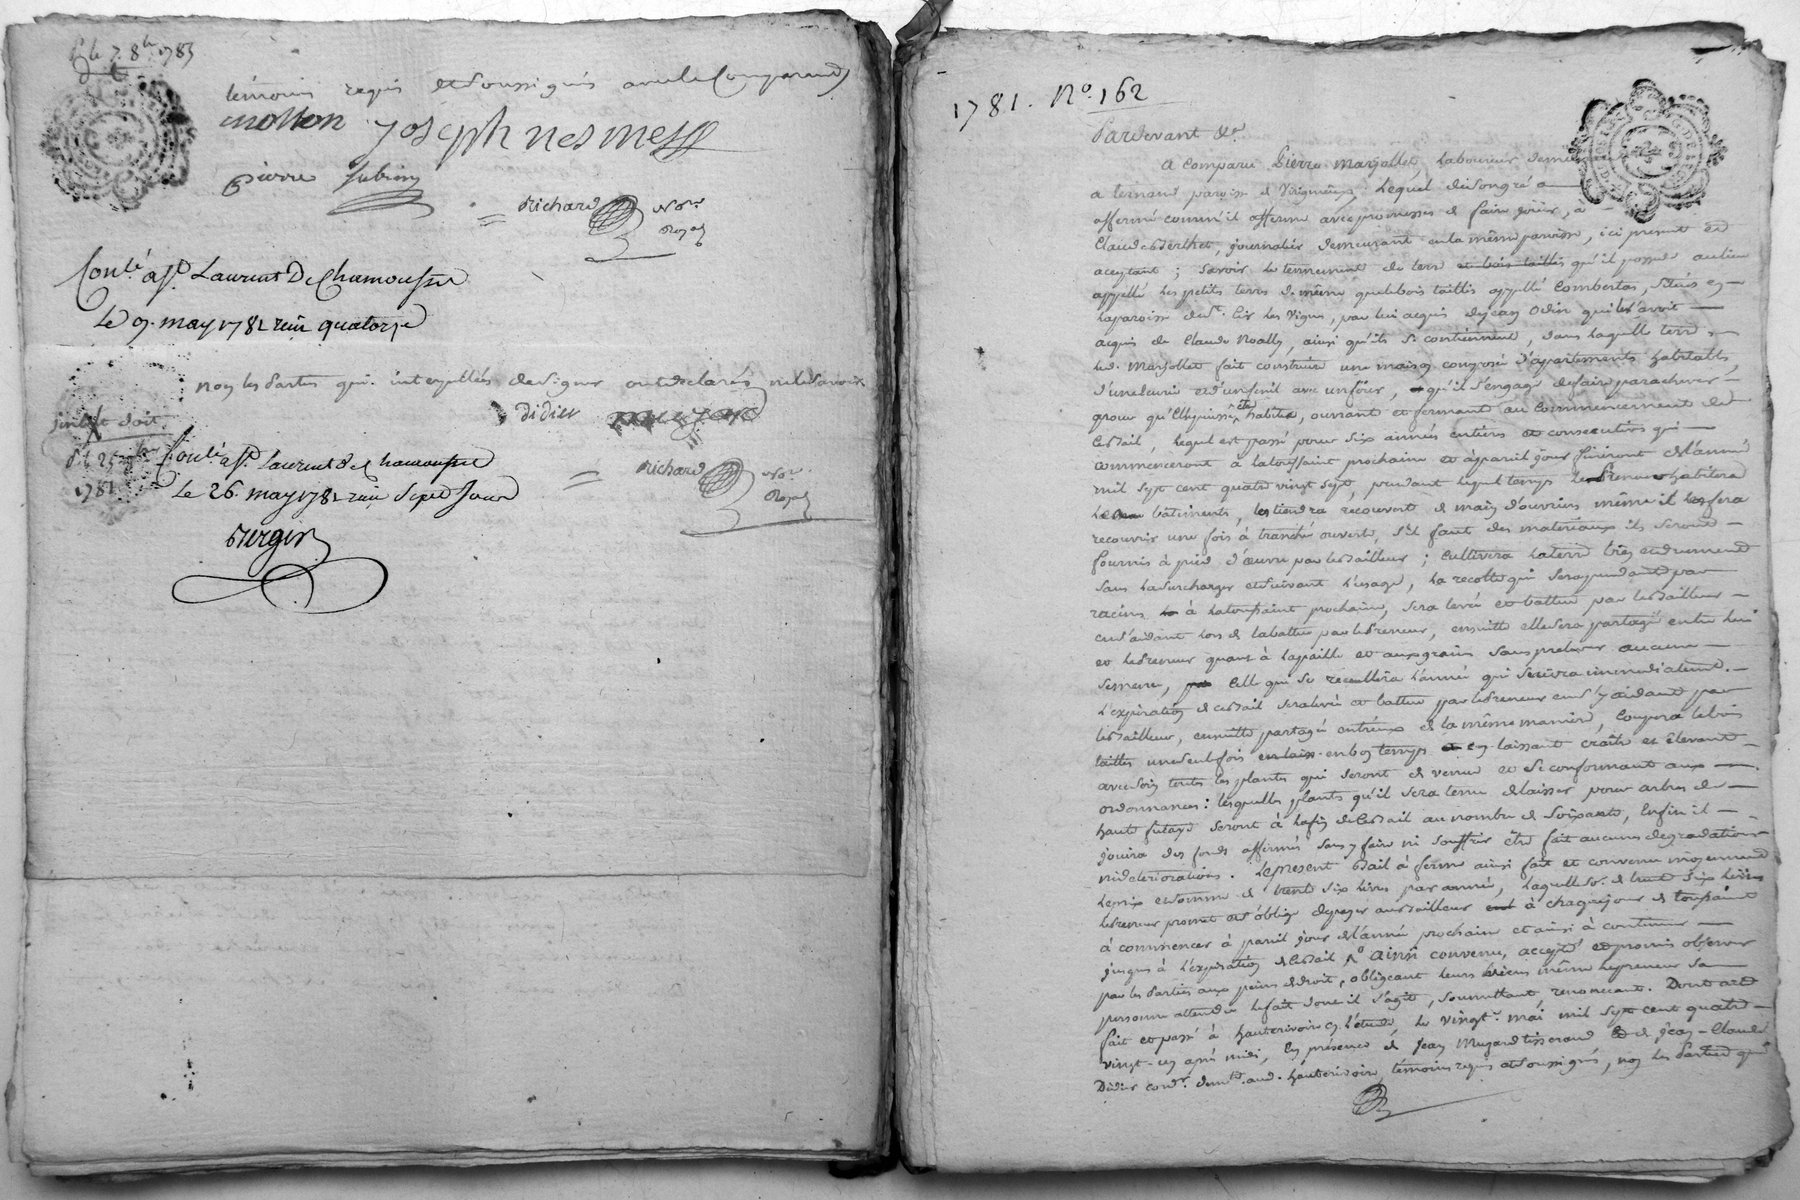 témoins requis et soussignés avec le Comparand
mollon joseph nesme
pierre
Richard No.re
Royal
Conlé à St. Laurent De Chamousset
Le 9. may 1781 reçu quatorze
non les Parties qui interpellées de signer ont déclarés ne le savoir
didier
Conlé à St. Laurent de chamousset
Le 26. may 1781 reçu sept sous
Richard No.re
Royal
1781
1781. No. 162
Pardevant &c
a comparu Pierre Marjollet, laboureur
paroisse de Virigneux, Lequel de son gré a
affermé comme il afferme avec promesses de faire joüir, à
Claude Berthet, journalier demeurant en la même paroisse, ici présent et
aceptant ; savoir le tennement de terre et bois taillis qu'il possede au lieu
appellé les petits terres de même que le bois taillis appellé Combertas, situés en
la paroisse de St. Cir les Vignes, par lui acquis de Jean Odin qui les avoit
acquis de Claude Noally, ainsi qu'ils se contiennent, dans laquelle terre
led. Marjollet fait construire une maison composée d'apartements habitables,
d'une écurie et d'un fenil avec un four, qu'il s'engage de faire parachever
pour qu'elle puisse être habitée, ouvrant et fermant au commencement de
ce Bail, lequel est passé pour six années entieres et consecutives qui
commenceront à la toussaint prochaine et à pareil jour finiront de l'année
mil sept cent quatre vingt sept, pendant lequel temps le Preneur habitera
les bâtiments, les tiendra recouvert de main d'ouvriers même il les fera
recouvrir une fois à tranché ouverte, s'il faut des materiaux ils seront
fournis à pied d'œuvre par le Bailleur ; cultivera la terre bien et duement
sans la surcharger et suivant l'usage, la recolte qui sera pendante par
racines à la toussaint prochaine, sera levée et battue par le Bailleur
en s'aidant lors de la battue par le Preneur, ensuitte elle sera partagée entre lui
et le Preneur quant à la paille et aux grains sans prelever aucune
semence, celle qui se recueillera l'année qui suivra immediatemt.
l'expiration de ce Bail sera levée et battue par le Preneur en s'y aidant par
le Bailleur, ensuitte partagée entr'eux de la même maniere, Coupera le bois
taillis une seule fois en bon temps en laissant croître et élevant
avec soin toutes les plantes qui seront de venue et se conformant aux
ordonnances : lesquelles plants qu'il sera tenu de laisser pour arbres de
haute futaye seront à la fin de ce Bail au nombre de soixante, Enfin il
jouira des fonds affermés sans y faire ni souffrir être fait aucunes degradations
ni deteriorations. Le present Bail à ferme ainsi fait et convenu moyennant
le prix et somme de trente six livres par année, laquelle se. de trente six livres
le Preneur promet et s'oblige de payer au Bailleur à chaque jour de toussaint
à commencer à pareil jour de l'année prochaine et ainsi à continuer
jusques à l'expiration de ce Bail. Ainsi convenu, accepté et promis observer
par les Parties aux peines de droit, obligeant leurs biens même le preneur sa
personne attendu le fait dont il s'agit, soumettant renoncant. Dont acte
fait et passé à hauterivoire en l'étude, le vingt mai mil sept cent quatre
vingt-un après midi, En présence de Jean Mugard tisserand et de Jean-Claude
Didier cord. demt. aud. hauterivoire, témoins requis et soussignés, non les Parties qui